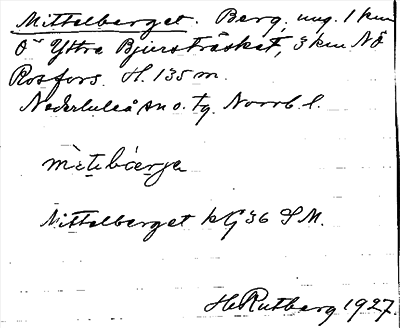 Mittelberget. Berg. ung. 1 km
Ö Yttre Bjursträsket, 3 km NÖ
Rosfors. H. 135 m.
Nederluleå sn o. tg. Norrb. l.
Mittelberget kG 36 SM.
H Rutberg 1927.